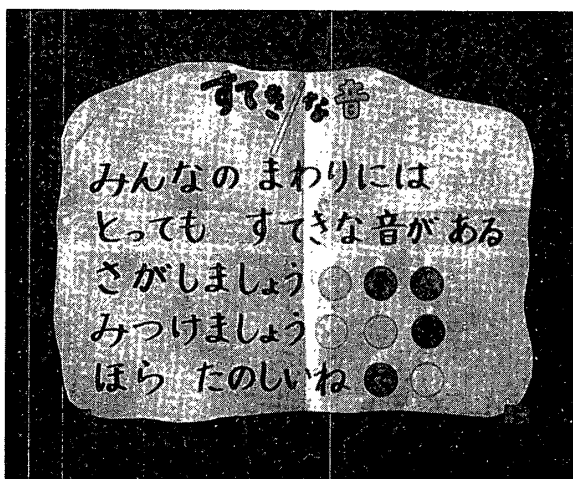 すてきな音
みんなの まわりには
とっても すてきな音が ある
さがしましょう
みつけましょう
ほら たのしいね